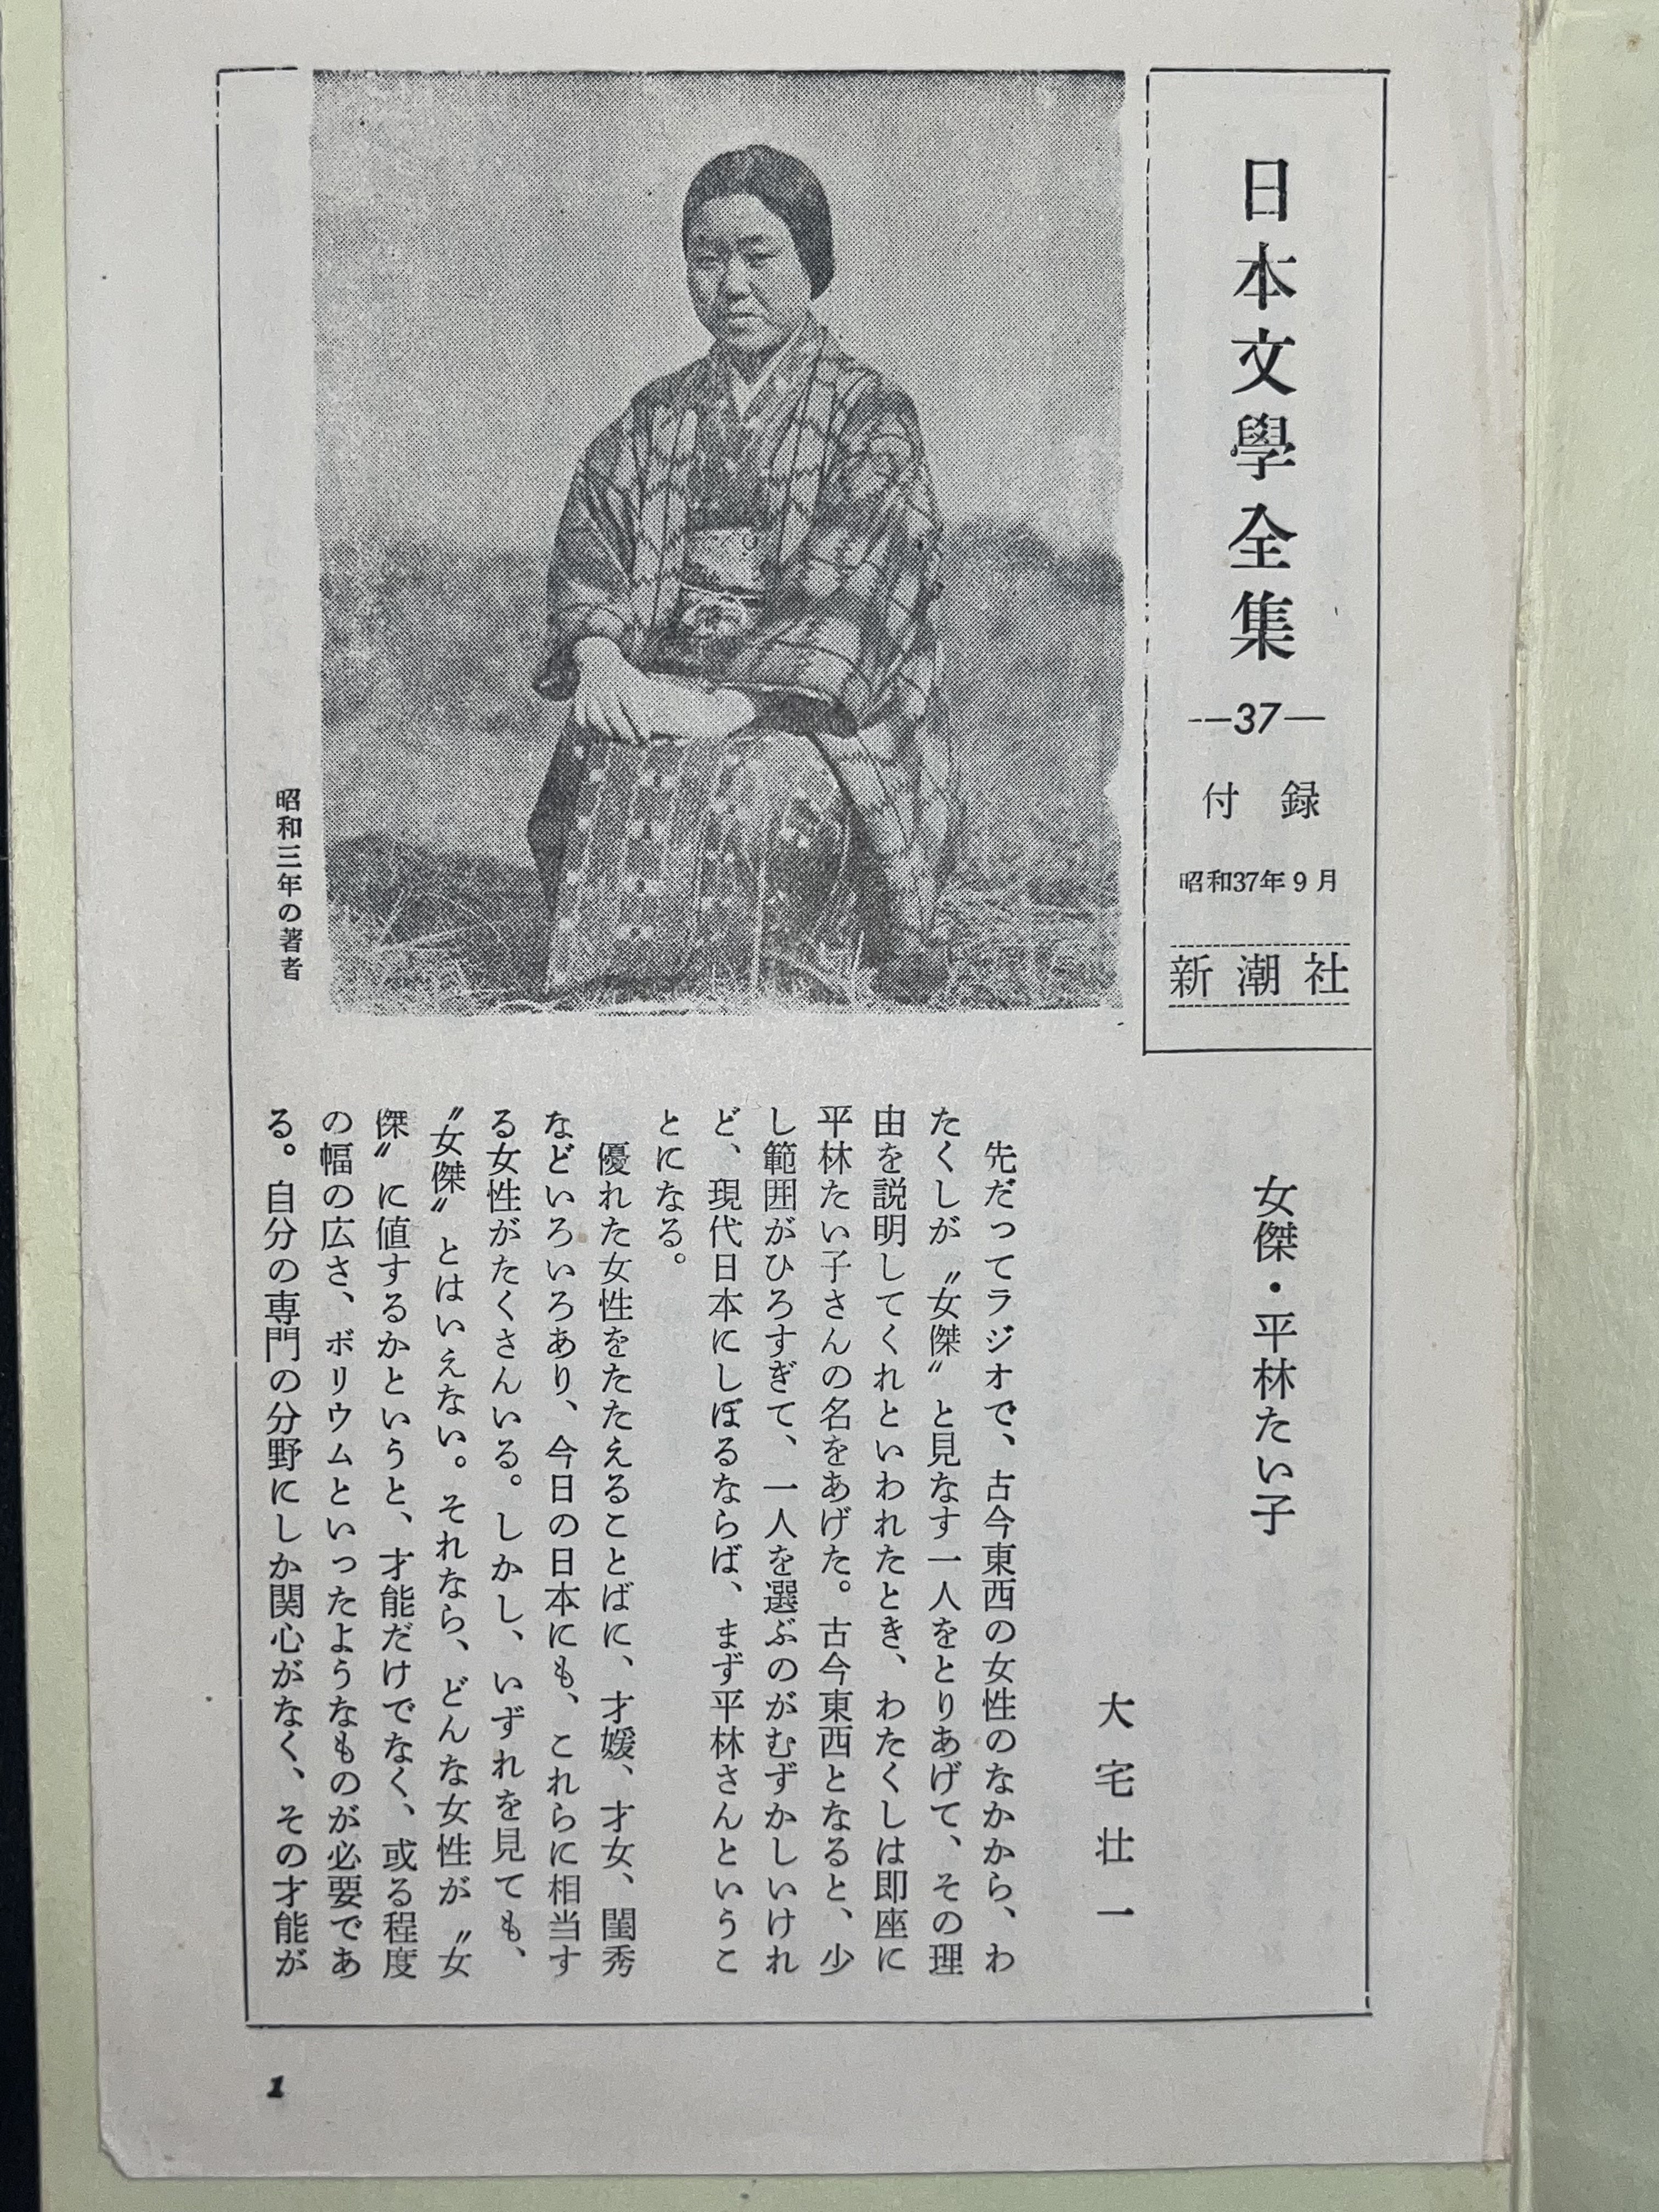 日本文學全集
―37―
付録
昭和37年9月
新潮社
昭和三年の著者
女傑・平林たい子
大宅壮一
先だってラジオで、古今東西の女性のなかから、わ
たくしが〝女傑〟と見なす一人をとりあげて、その理
由を説明してくれといわれたとき、わたくしは即座に
平林たい子さんの名をあげた。古今東西となると、少
し範囲がひろすぎて、一人を選ぶのがむずかしいけれ
ど、現代日本にしぼるならば、まず平林さんというこ
とになる。
優れた女性をたたえることばに、才媛、才女、閨秀
などいろいろあり、今日の日本にも、これらに相当す
る女性がたくさんいる。しかし、いずれを見ても、
〝女傑〟とはいえない。それなら、どんな女性が〝女
傑〟に値するかというと、才能だけでなく、或る程度
の幅の広さ、ボリウムといったようなものが必要であ
る。自分の専門の分野にしか関心がなく、その才能が
1